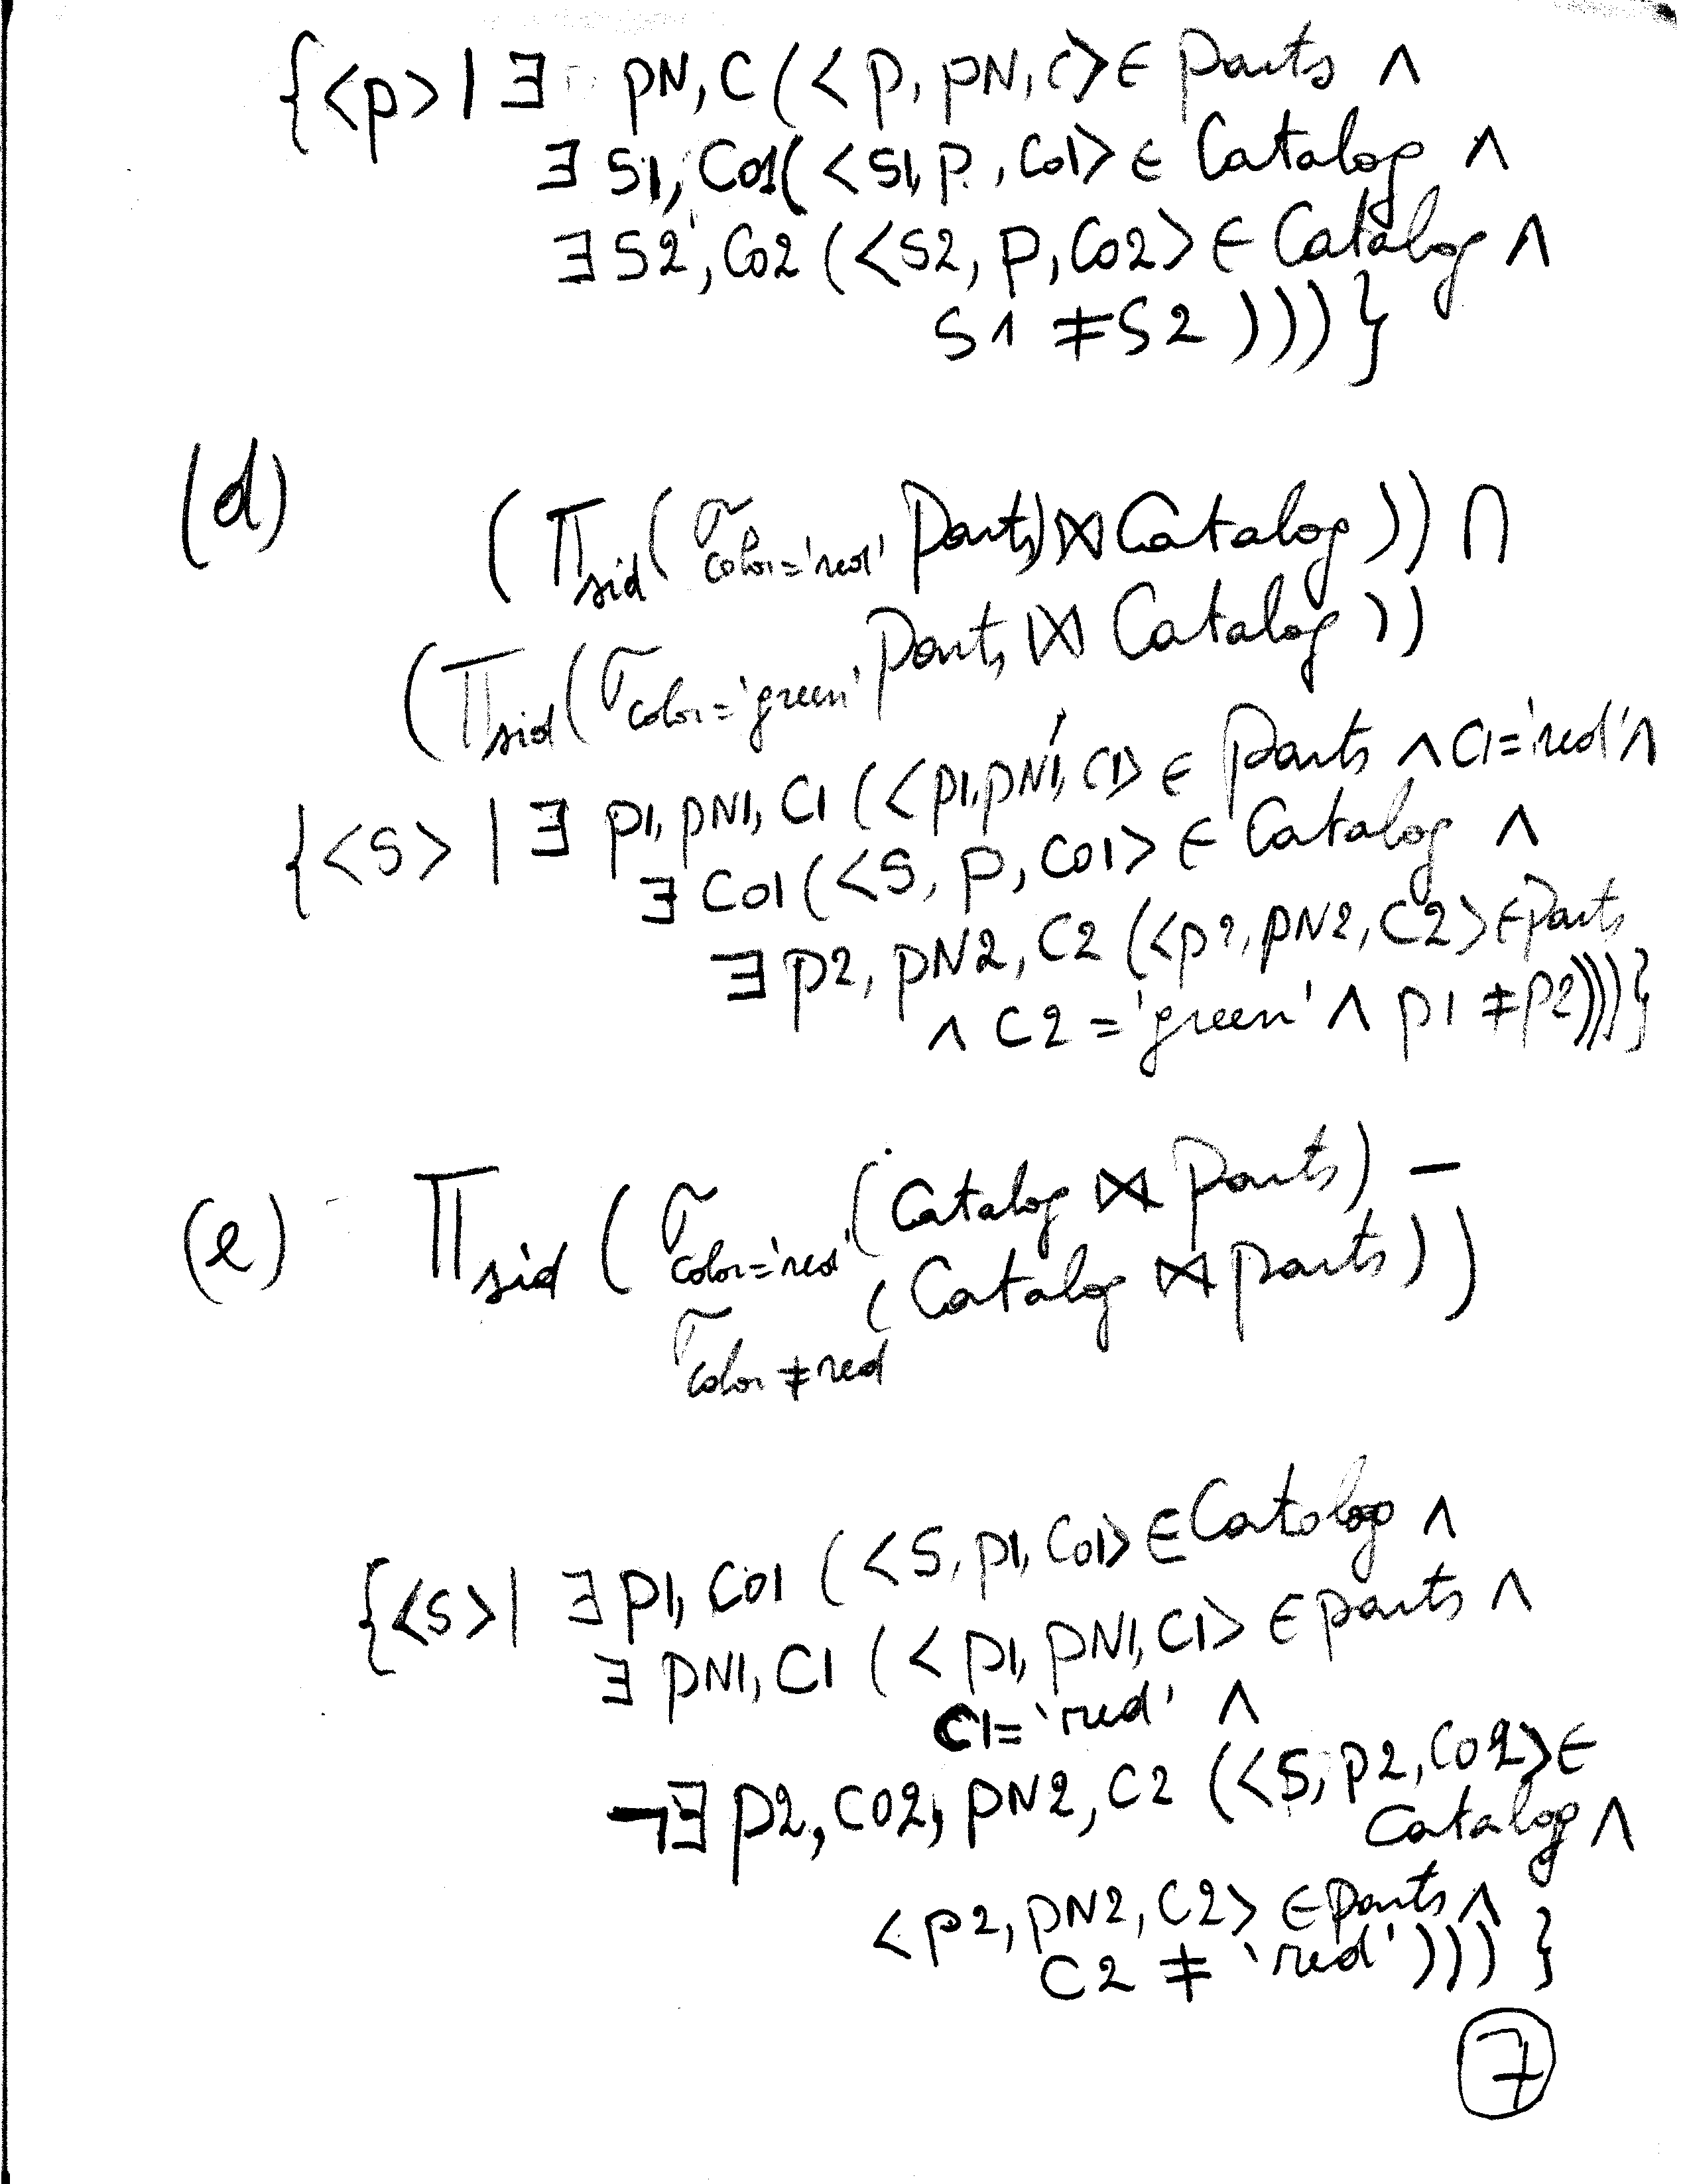 {<p> | ∃ pN, C (<p, pN, C> ∈ Parts ∧
∃ S1, Co1 (<S1, p, Co1> ∈ Catalog ∧
∃ S2, Co2 (<S2, p, Co2> ∈ Catalog ∧
S1 ≠ S2 )))}
(d) (π sid (σ color='red' Parts) ⋈ Catalog )) ∩
(π sid (σ color='green' Parts ⋈ Catalog ))
{<S> | ∃ p1, pN1, C1 (<p1, pN1, C1> ∈ Parts ∧ C1='red' ∧
∃ Co1 (<S, p, Co1> ∈ Catalog ∧
∃ p2, pN2, C2 (<p2, pN2, C2> ∈ Parts
∧ C2 = 'green' ∧ p1 ≠ p2)))}
(e) π sid ( σ color='red' (Catalog ⋈ Parts) −
σ color≠red (Catalog ⋈ Parts) )
{<S> | ∃ p1, Co1 (<S, p1, Co1> ∈ Catalog ∧
∃ pN1, C1 (<p1, pN1, C1> ∈ parts ∧
C1= 'red' ∧
¬∃ p2, CO2, pN2, C2 (<S, p2, CO2> ∈
Catalog ∧
<p2, pN2, C2> ∈ parts ∧
C2 ≠ 'red' ))) }
7